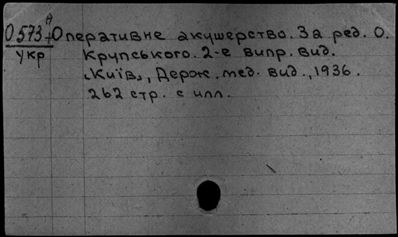 О573 А Оперативне акушерство. За ред. О.
укр Крупського. 2-е випр. вид.
„Київ", Держ. мед. вид., 1936.
262 стр. с илл.